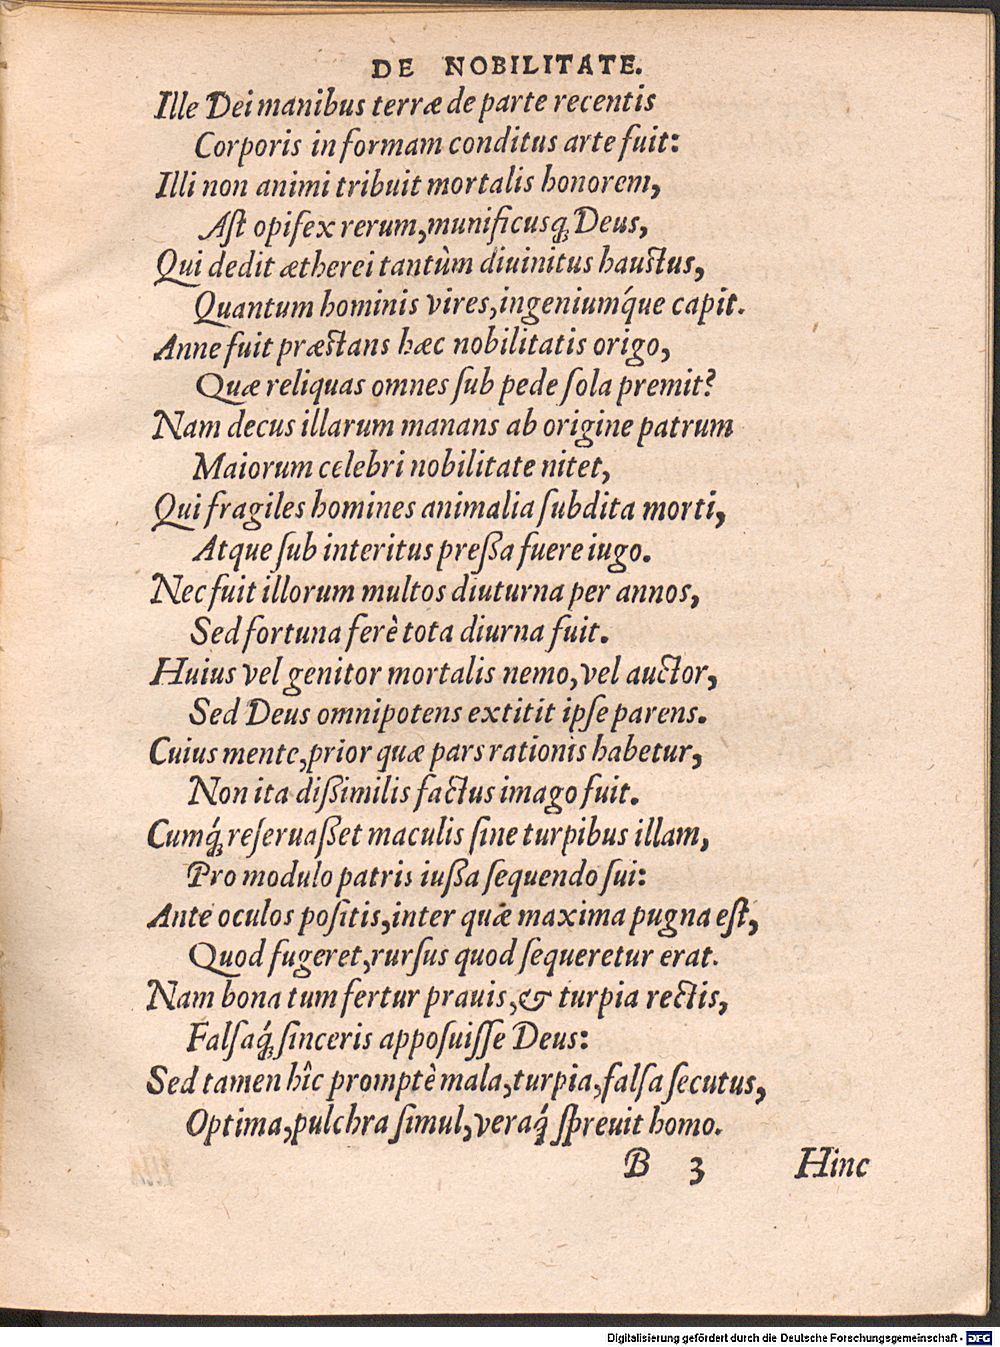 DE NOBILITATE.
Ille Dei manibus terræ de parte recentis
Corporis in formam conditus arte fuit:
Illi non animi tribuit mortalis honorem,
Aſt opifex rerum, munificusq́; Deus,
Qui dedit ætherei tantùm diuinitus hauctus,
Quantum hominis vires, ingeniumq́ue capit.
Anne fuit præſtans hæc nobilitatis origo,
Quæ reliquas omnes ſub pede ſola premit?
Nam decus illarum manans ab origine patrum
Maiorum celebri nobilitate nitet,
Qui fragiles homines animalia ſubdita morti,
Atque ſub interitus preßa fuere iugo.
Nec fuit illorum multos diuturna per annos,
Sed fortuna ferè tota diurna fuit.
Huius vel genitor mortalis nemo, vel auctor,
Sed Deus omnipotens extitit ipſe parens.
Cuius mente, prior quæ pars rationis habetur,
Non ita dißimilis factus imago fuit.
Cumq́; reſeruaßet maculis ſine turpibus illam,
Pro modulo patris iußa ſequendo ſui:
Ante oculos poſitis, inter quæ maxima pugna eſt,
Quod fugeret, rurſus quod ſequeretur erat.
Nam bona tum fertur prauis, & turpia rectis,
Falſaq́; ſinceris appoſuiſſe Deus:
Sed tamen hîc promptè mala, turpia, falſa ſecutus,
Optima, pulchra ſimul, veraq́; ſpreuit homo.
B 3 Hinc
Digitalisierung gefördert durch die Deutsche Forschungsgemeinschaft - DFG